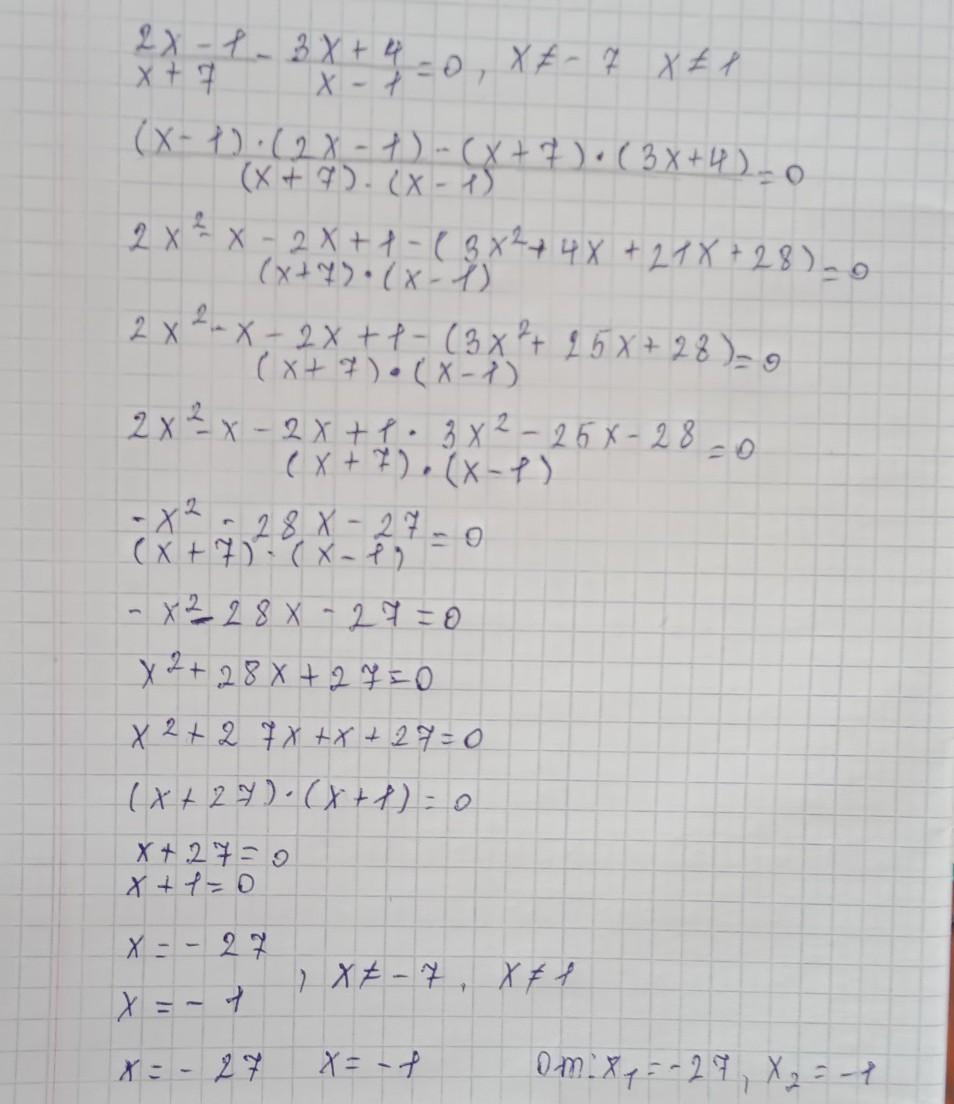 (2x - 1)/(x + 7) - (3x + 4)/(x - 1) = 0, x ≠ - 7 x ≠ 1
((x - 1)·(2x - 1) - (x + 7)·(3x + 4))/((x + 7)·(x - 1)) = 0
(2x² - x - 2x + 1 - (3x² + 4x + 21x + 28))/((x + 7)·(x - 1)) = 0
(2x² - x - 2x + 1 - (3x² + 25x + 28))/((x + 7)·(x - 1)) = 0
(2x² - x - 2x + 1 · 3x² - 25x - 28)/((x + 7)·(x - 1)) = 0
(-x² - 28x - 27)/((x + 7)·(x - 1)) = 0
- x² - 28x - 27 = 0
x² + 28x + 27 = 0
x² + 27x + x + 27 = 0
(x + 27)·(x + 1) = 0
x + 27 = 0
x + 1 = 0
x = - 27
, x ≠ - 7, x ≠ 1
x = - 1
x = - 27 x = - 1 От: x₁ = -27, x₂ = -1